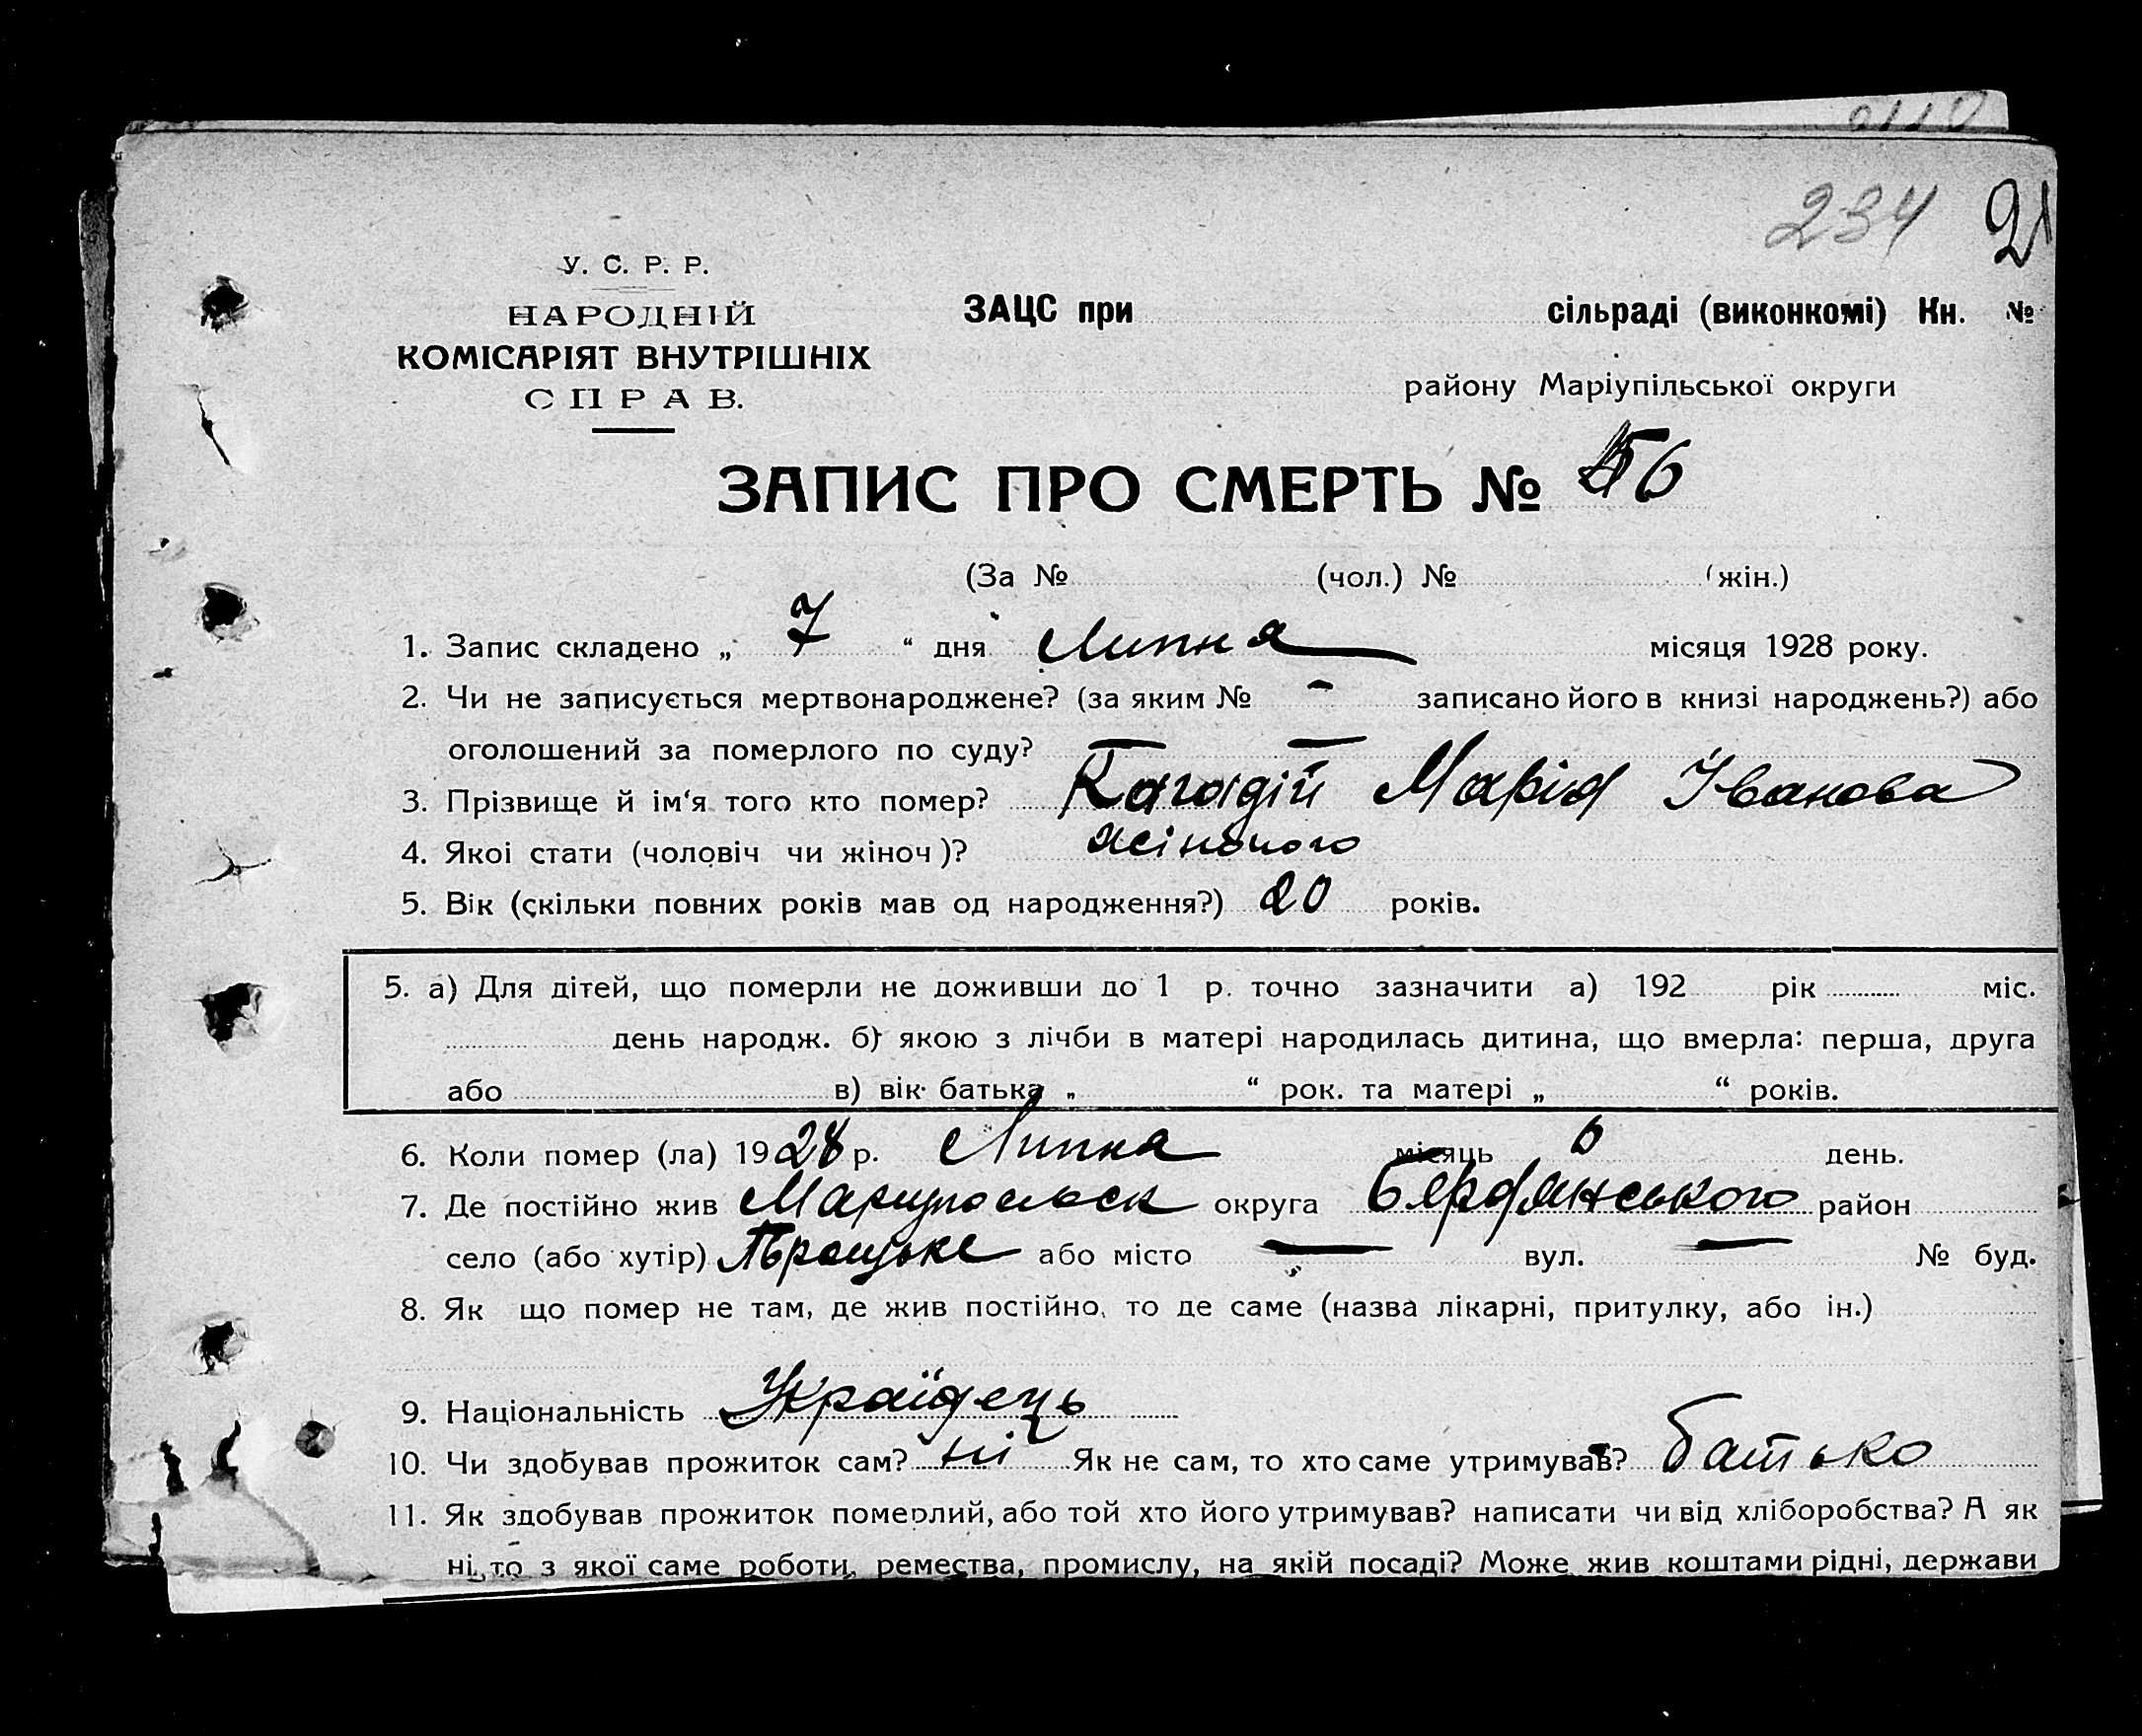 234 21
У. С. Р. Р.
НАРОДНІЙ
КОМІСАРІЯТ ВНУТРІШНІХ
СПРАВ.
ЗАЦС при сільраді (виконкомі) Кн. №
району Маріупільської округи
ЗАПИС ПРО СМЕРТЬ № 56
(За № (чол.) № (жін.)
1. Запис складено „ 7 “ дня Липня місяця 1928 року.
2. Чи не записується мертвонароджене? (за яким № – записано його в книзі народжень?) або
оголошений за померлого по суду? — —
3. Прізвище й ім‘я того кто помер? Марія Іванова
4. Якоі стати (чоловіч чи жіноч)? жіночого
5. Вік (скільки повних років мав од народження?) 20 років.
5. а) Для дітей, що померли не доживши до 1 р. точно зазначити а) 192 рік міс.
день народж. б) якою з лічби в матері народилась дитина, що вмерла: перша, друга
або в) вік батька „ “ рок. та матері „ “ років.
6. Коли помер (ла) 1928 р. Липня місяць 6 день.
7. Де постійно жив Мариупольск округа Бердянського район
село (або хутір) або місто — вул. — № буд.
8. Як що помер не там, де жив постійно, то де саме (назва лікарні, притулку, або ін.)
9. Національність Українець
10. Чи здобував прожиток сам? ні Як не сам, то хто саме утримував? батько
11. Як здобував прожиток померлий, або той хто його утримував? написати чи від хліборобства? А як
ні, то з якої саме роботи, ремества, промислу, на якій посаді? Може жив коштами рідні, держави